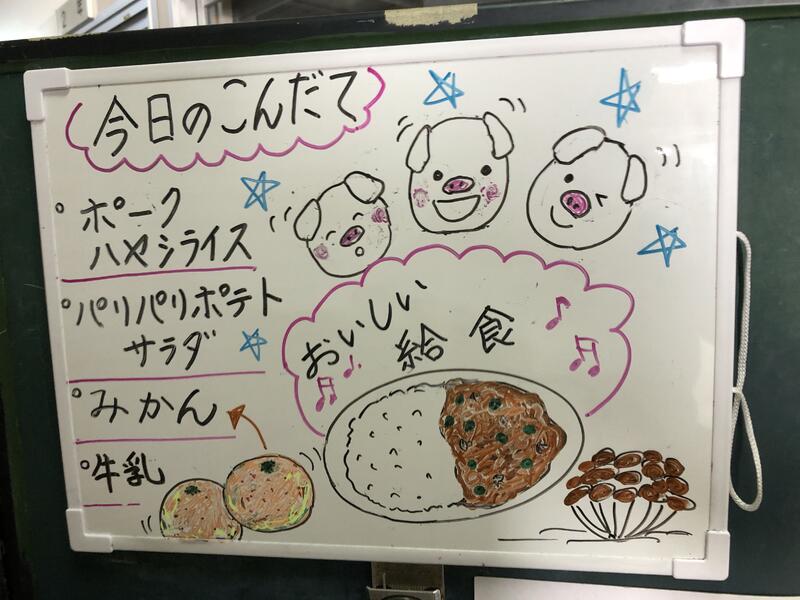 今日のこんだて
ポーク
ハヤシライス
パリパリポテト
サラダ
みかん
牛乳
おいしい
給食